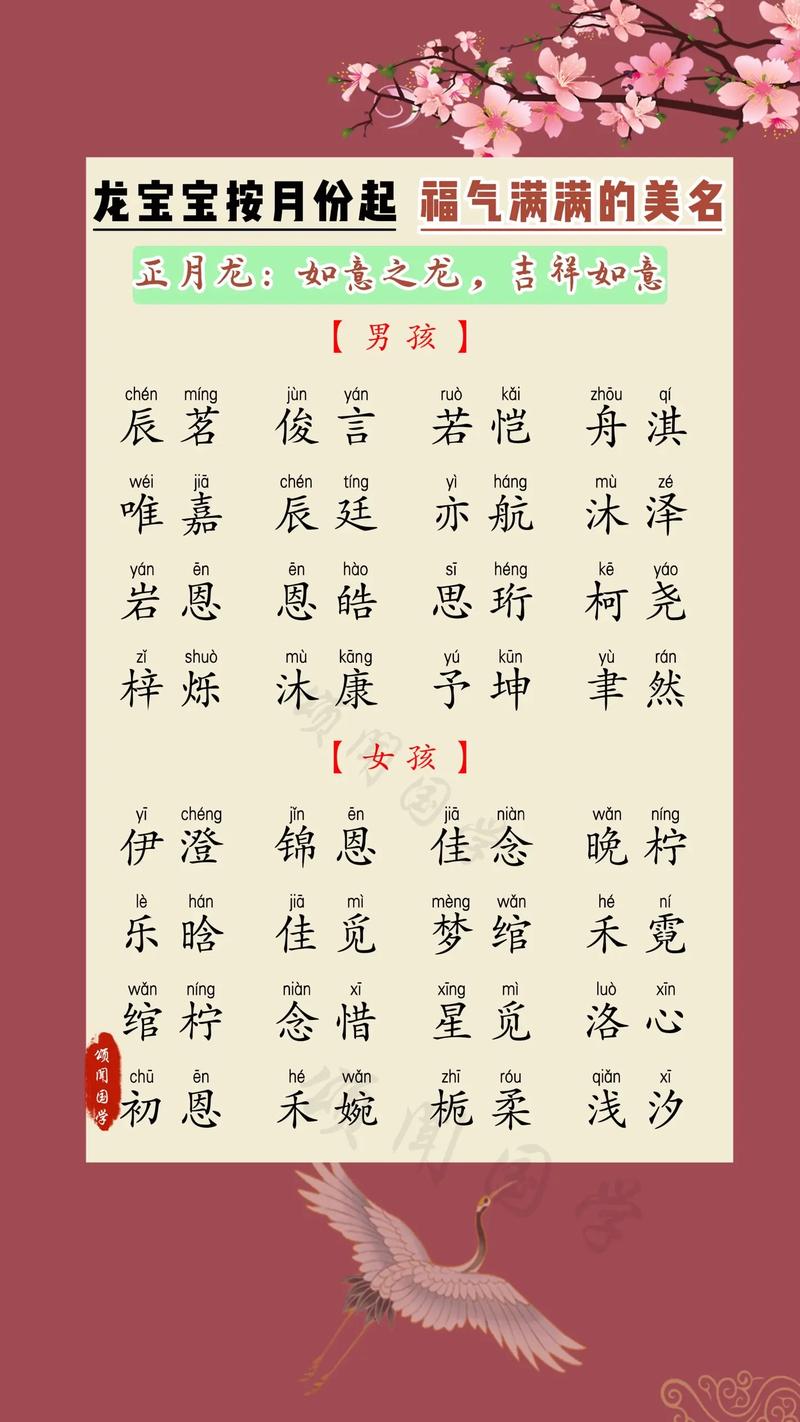 龙宝宝按月份起 福气满满的美名
正月龙：如意之龙，吉祥如意
【男孩】
chén míng jùn yán ruò kǎi zhōu qí
辰茗 俊言 若恺 舟淇
wéi jiā chén tíng yì háng mù zé
唯嘉 辰廷 亦航 沐泽
yán ēn ēn hào sī héng kē yáo
岩恩 恩皓 思珩 柯尧
zǐ shuò mù kāng yú kūn yù rán
梓烁 沐康 予坤 聿然
【女孩】
yī chéng jǐn ēn jiā niàn wǎn níng
伊澄 锦恩 佳念 晚柠
lè hán jiā mì mèng wǎn hé ní
乐晗 佳觅 梦绾 禾霓
wǎn níng niàn xī xīng mì luò xīn
绾柠 念惜 星觅 洛心
chū ēn hé wǎn zhī róu qiǎn xī
初恩 禾婉 栀柔 浅汐
颂闻国学
颂闻国学
颂闻国学